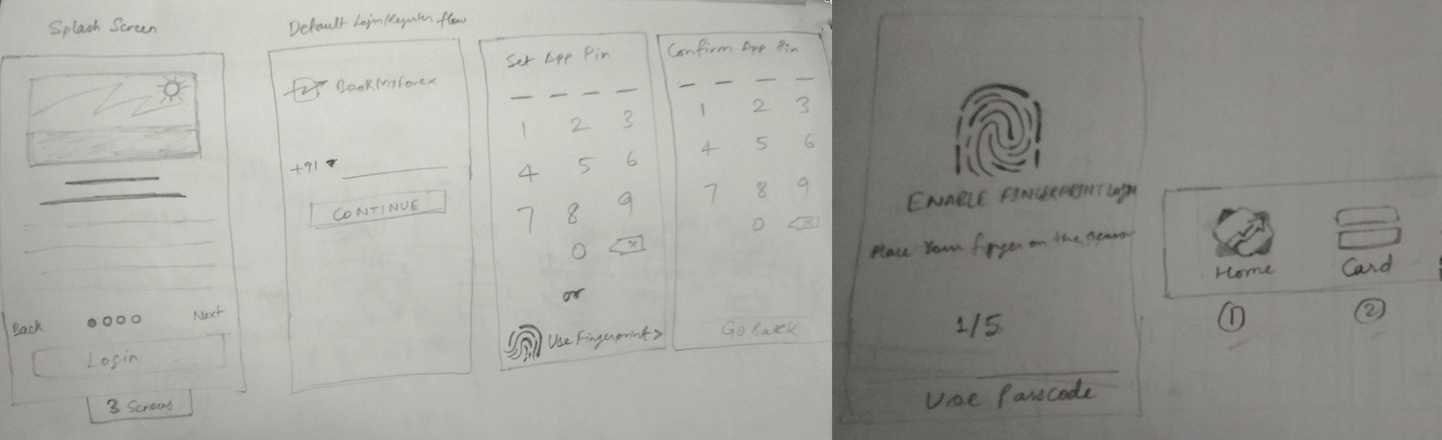 Splash Screen
Back
Next
Login
3 Screens
Default Login/Register flow
BookMyForex
+91
CONTINUE
Set App Pin
1 2 3
4 5 6
7 8 9
0 x
or
Use Fingerprint >
Confirm App Pin
1 2 3
4 5 6
7 8 9
0 x
Go Back
ENABLE FINGERPRINT LOGIN
Place Your finger on the sensor
1/5
Use Passcode
Home
Card
1
2